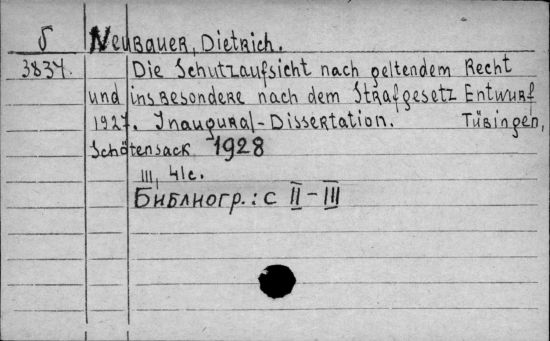 б
Neubauer, Dietrich.
3834.
Die Schutzaufsicht nach geltendem Recht
und insbesondere nach dem Strafgesetz Entwurf
1927. Inaugural-Dissertation. Tübingen,
Schötensack 1928
III, 41c.
Библиогр.: с II-III